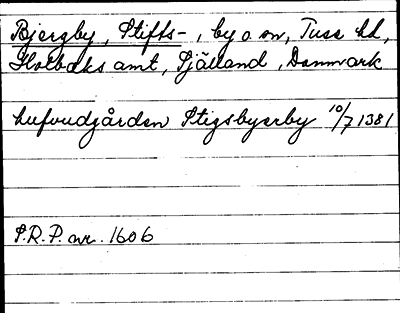 Bjergby, Stifts-, by o sn, Tuse hd,
Holbæks amt, Själland, Danmark
hufvudgården Stigsbyerby 10/7 1381
S.R.P. nr. 1606